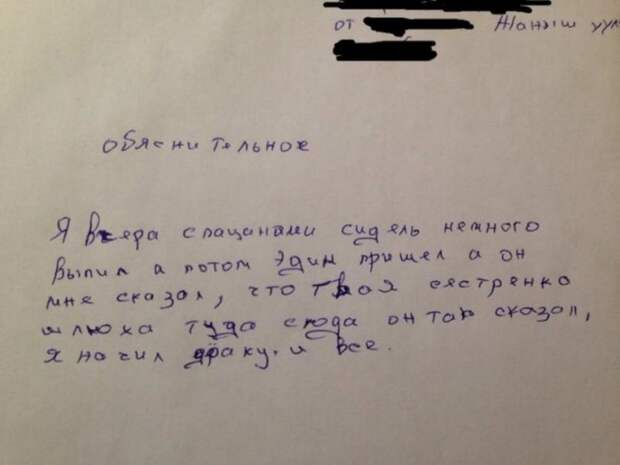 от Жаныш уул
обяснительное
Я вчера спацанами сидель немного
выпил а потом Эдин пришел а он
мне сказал, что твая сестренка
шлюха туда сюда он так сказал,
я начил драку. и все.